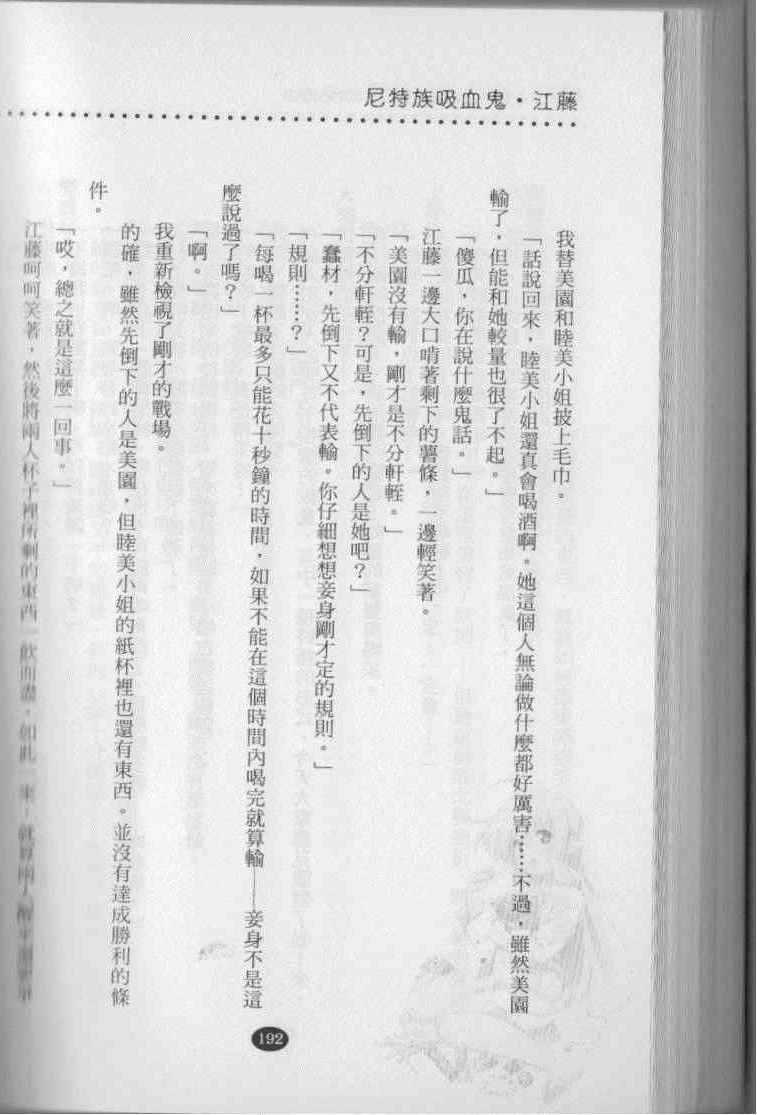 尼特族吸血鬼・江藤
我替美園和睦美小姐披上毛巾。
「話說回來，睦美小姐還真會喝酒啊。她這個人無論做什麼都好厲害……不過，雖然美園
輸了，但能和她較量也很了不起。」
「傻瓜，你在說什麼鬼話。」
江藤一邊大口啃著剩下的薯條，一邊輕笑著。
「美園沒有輸，剛才是不分軒輊。」
「不分軒輊？可是，先倒下的人是她吧？」
「蠢材，先倒下又不代表輸。你仔細想想妾身剛才定的規則。」
「規則……？」
「每喝一杯最多只能花十秒鐘的時間，如果不能在這個時間內喝完就算輸——妾身不是這
麼說過了嗎？」
「啊。」
我重新檢視了剛才的戰場。
的確，雖然先倒下的人是美園，但睦美小姐的紙杯裡也還有東西。並沒有達成勝利的條
件。
「哎，總之就是這麼一回事。」
江藤呵呵笑著，然後將兩人杯子裡所剩的東西一飲而盡。如此一來，就算兩人
192